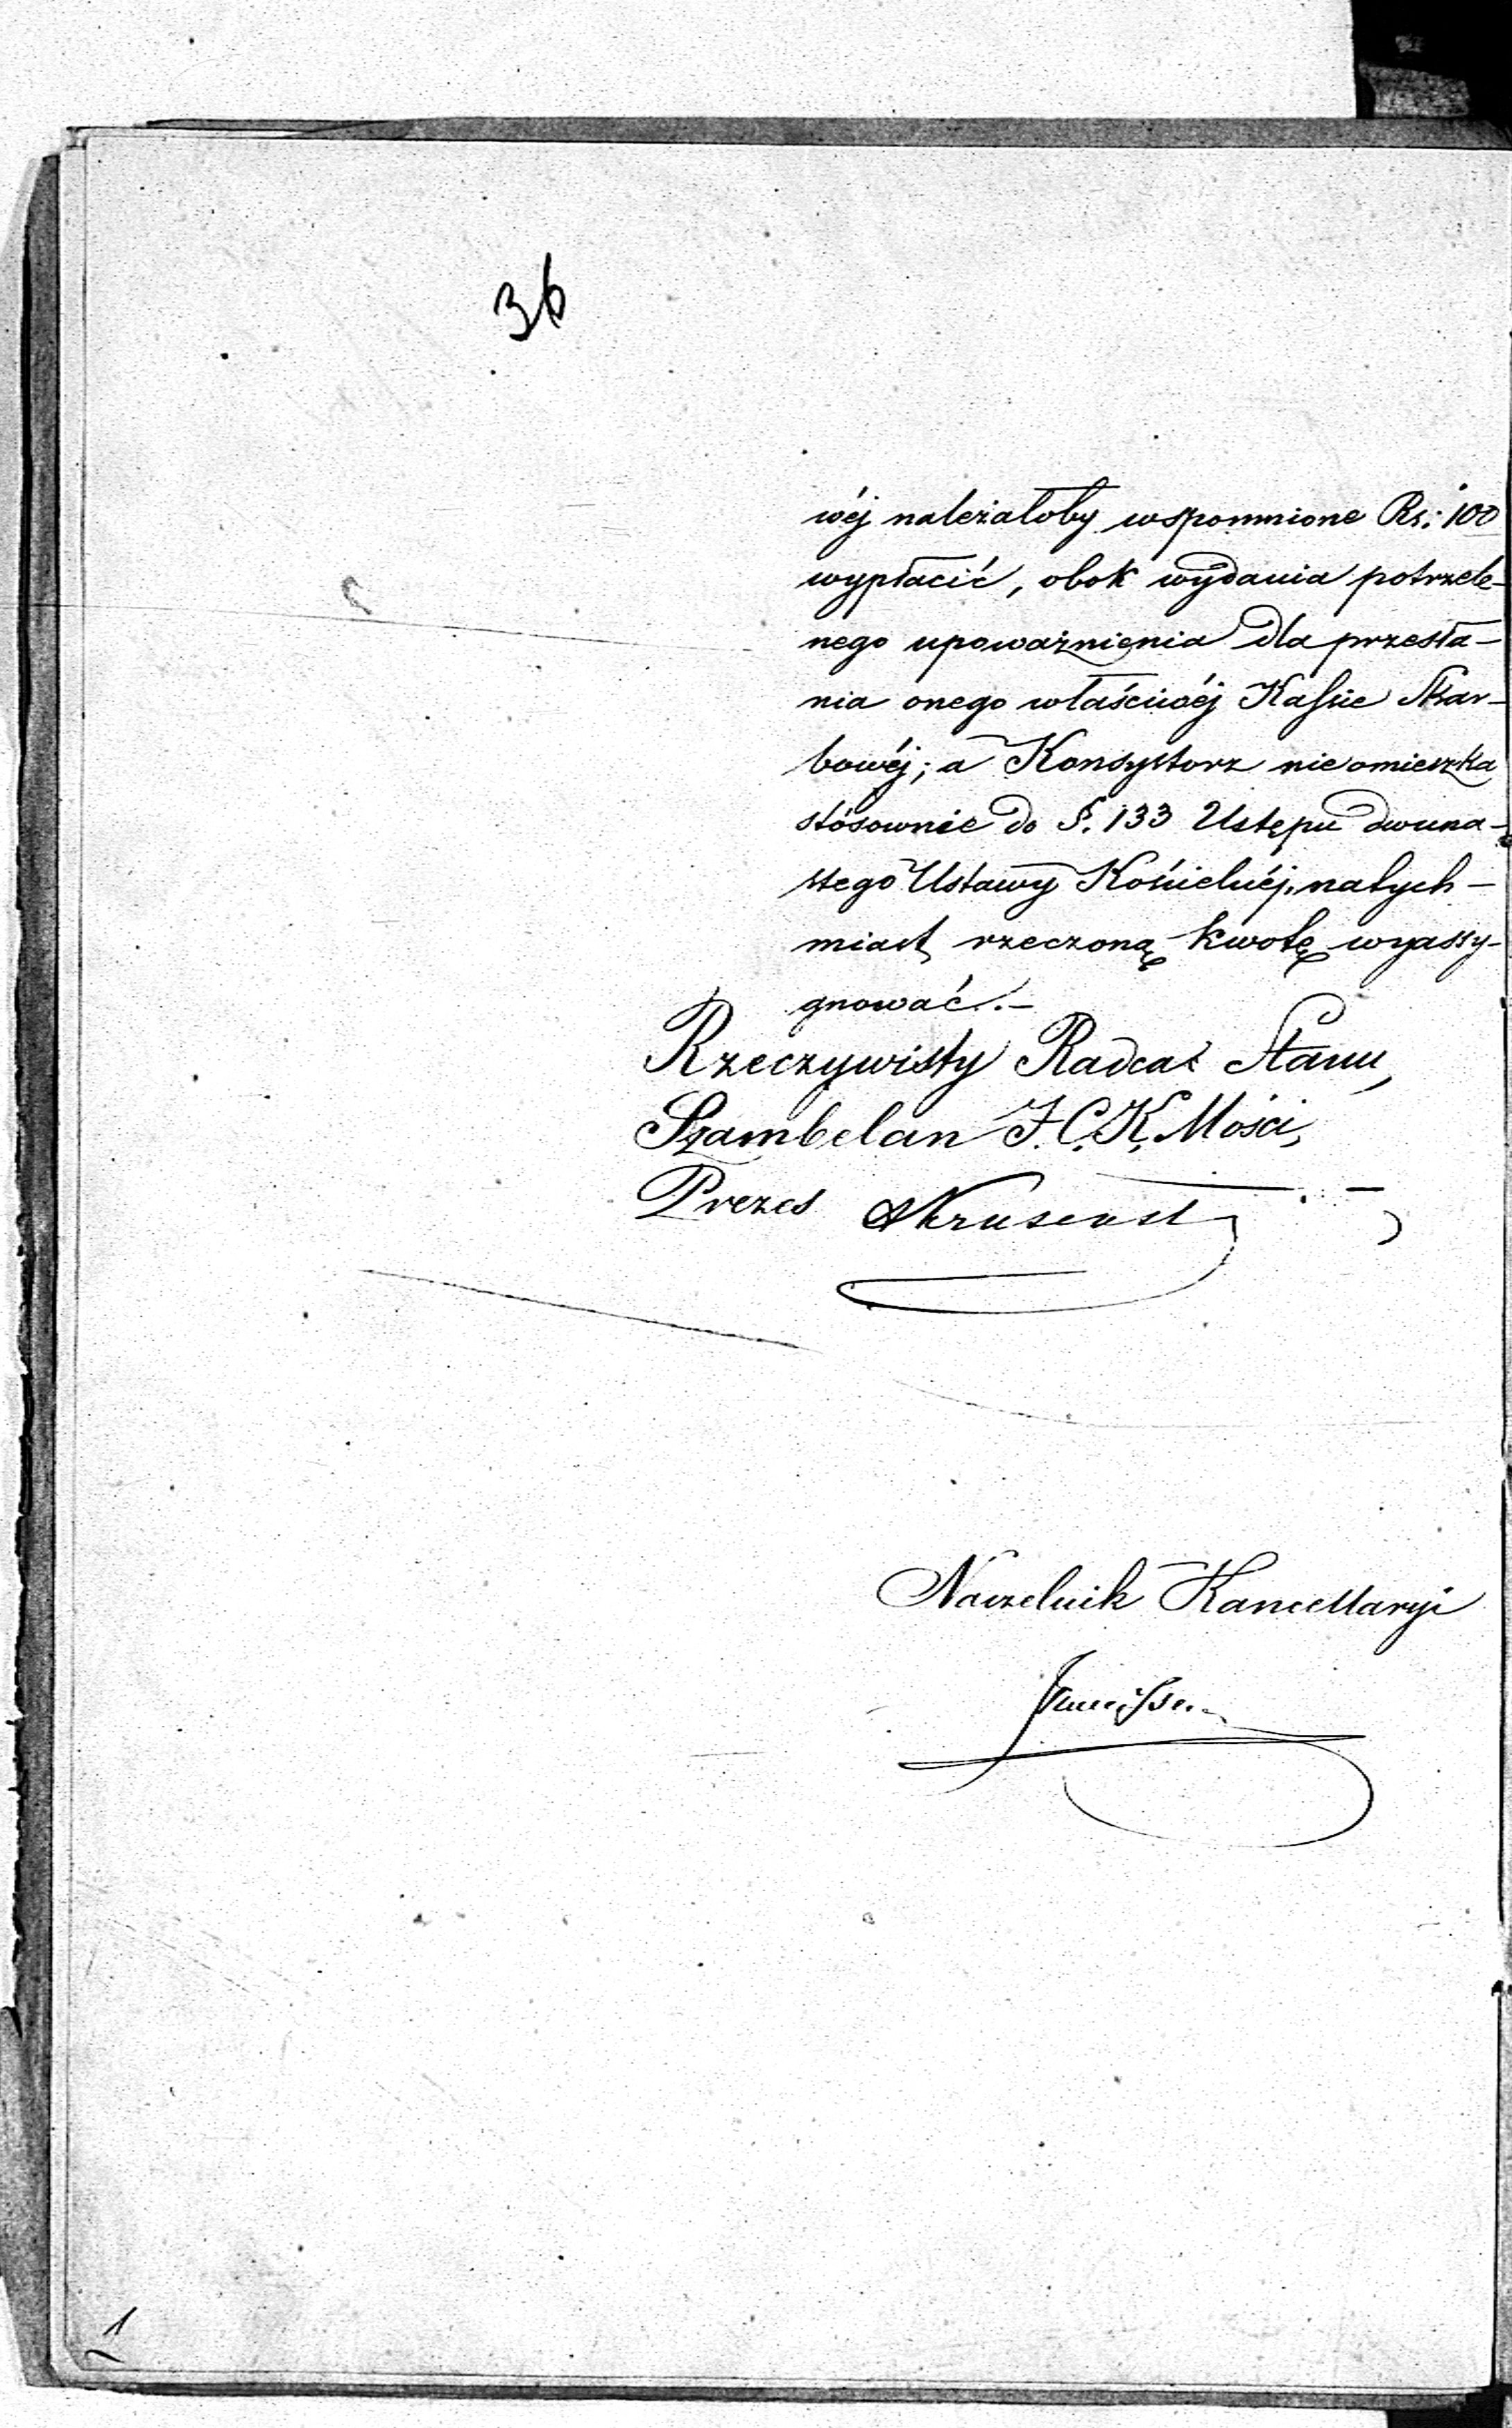 36
wéj należałoby wspomnione Rs: 100
wypłacić, obok wydania potrzeb-
nego upoważnienia dla przesła-
nia onego właściwéj Kassie Skar-
bowéj; a Konsystorz nieomieszka
stósownie do §. 133 Ustępu dwuna-
stego Ustawy Kościelnéj, natych-
miast rzeczoną kwotę wyassy-
gnować.-
Rzeczywisty Radca Stanu,
Szambelan J.C.K. Mości,
Prezes
Naczelnik Kancellaryi
1